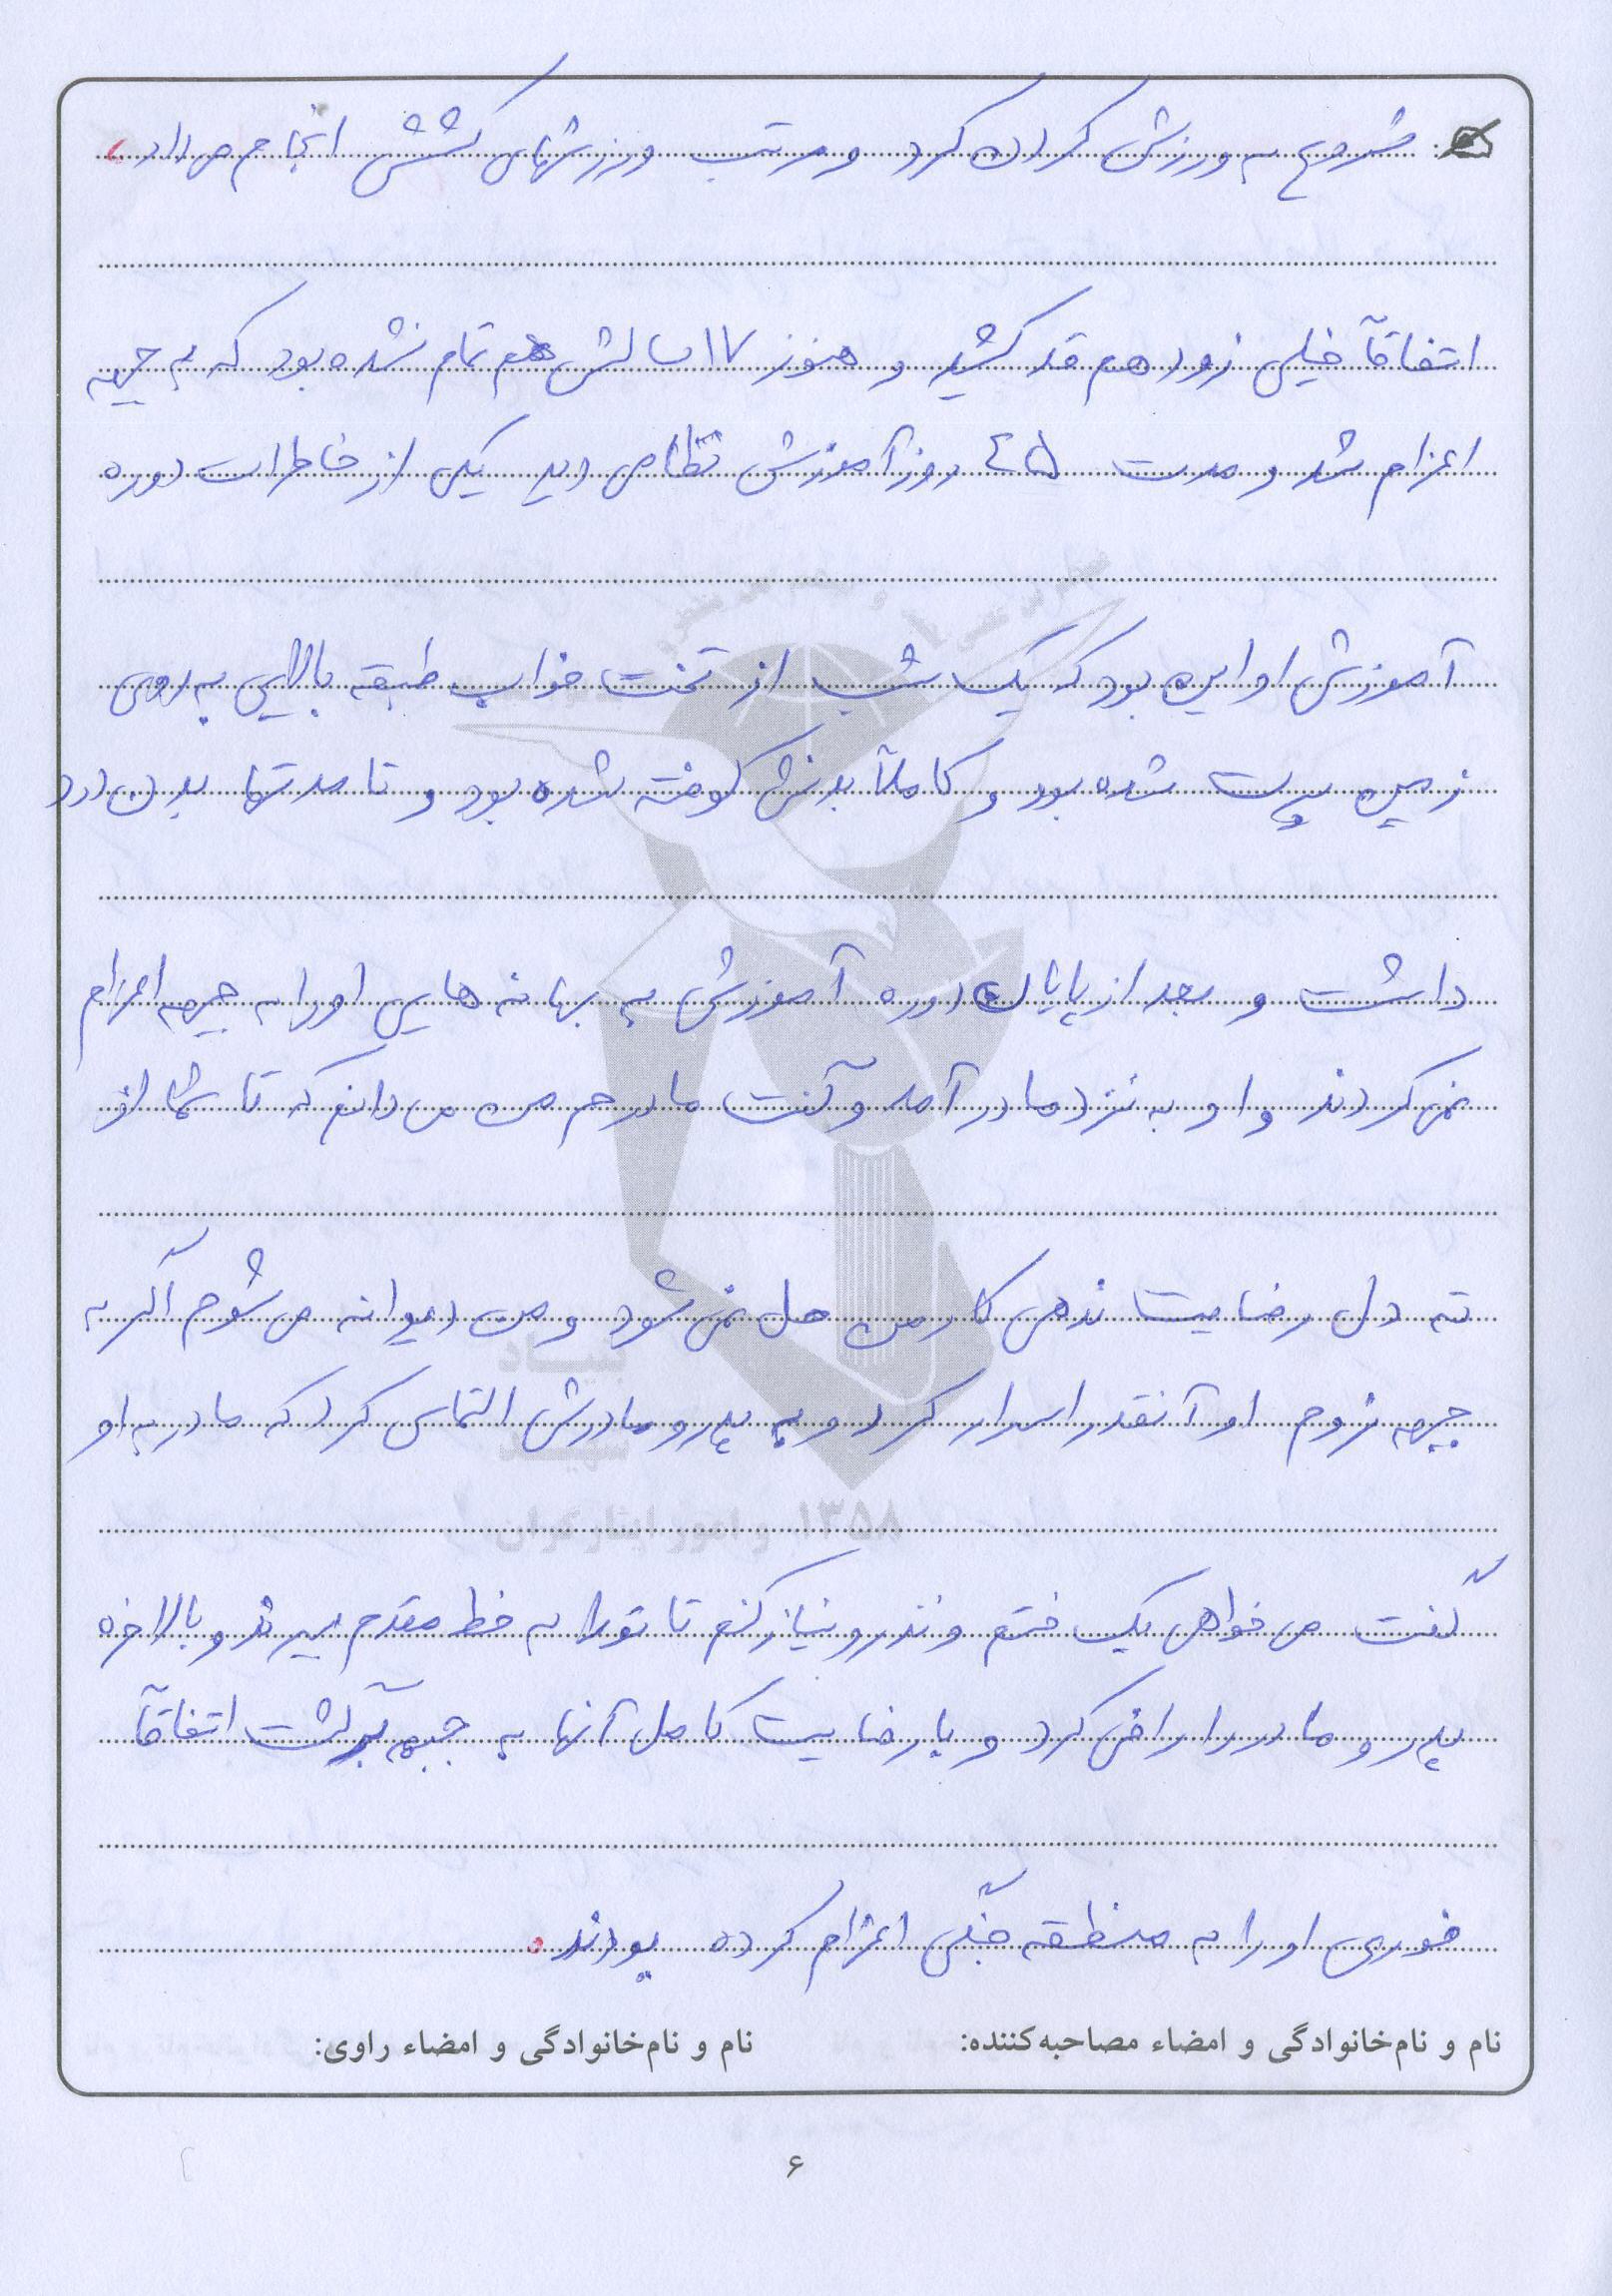 شروع به ورزش کردن کرد و مرتب ورزشهای کششی انجام می داد.
اتفاقاً خیلی زود هم قد کشید و هنوز ۱۷ سالش هم تمام نشده بود که به جبهه
اعزام شد و مدت ٤۵ روز آموزش نظامی دید یکی از خاطرات دوره
آموزش او این بود که یک شب از تخت خواب طبقه بالایی به روی
زمین پرت شده بود و کاملاً بدنش کوفته شده بود و تا مدتها بدن درد
داشت و بعد از پایان دوره آموزش به بهانه هایی او را به جبهه اعزام
نمی کردند و او به نزد مادر آمد و گفت مادرم من می دانم که تا شما از
ته دل رضایت ندهی کار من حل نمی شود و من دیوانه می شوم اگر به
جبهه نروم او آنقدر اسرار کرد و به پدر و مادرش التماس کرد که مادر به او
گفت می خواهی یک ختم و نذر و نیاز کنم تا تو را به خط مقدم ببرند و بالاخره
پدر و مادر را راضی کرد و با رضایت کامل آنها به جبهه برگشت اتفاقاً
فوری او را به منطقه جنگی اعزام کرده بودند.
بنیاد
شهید
و امور ایثارگران ۱۳۵۸
نام و نام‌خانوادگی و امضاء مصاحبه‌کننده: نام و نام‌خانوادگی و امضاء راوی:
۶